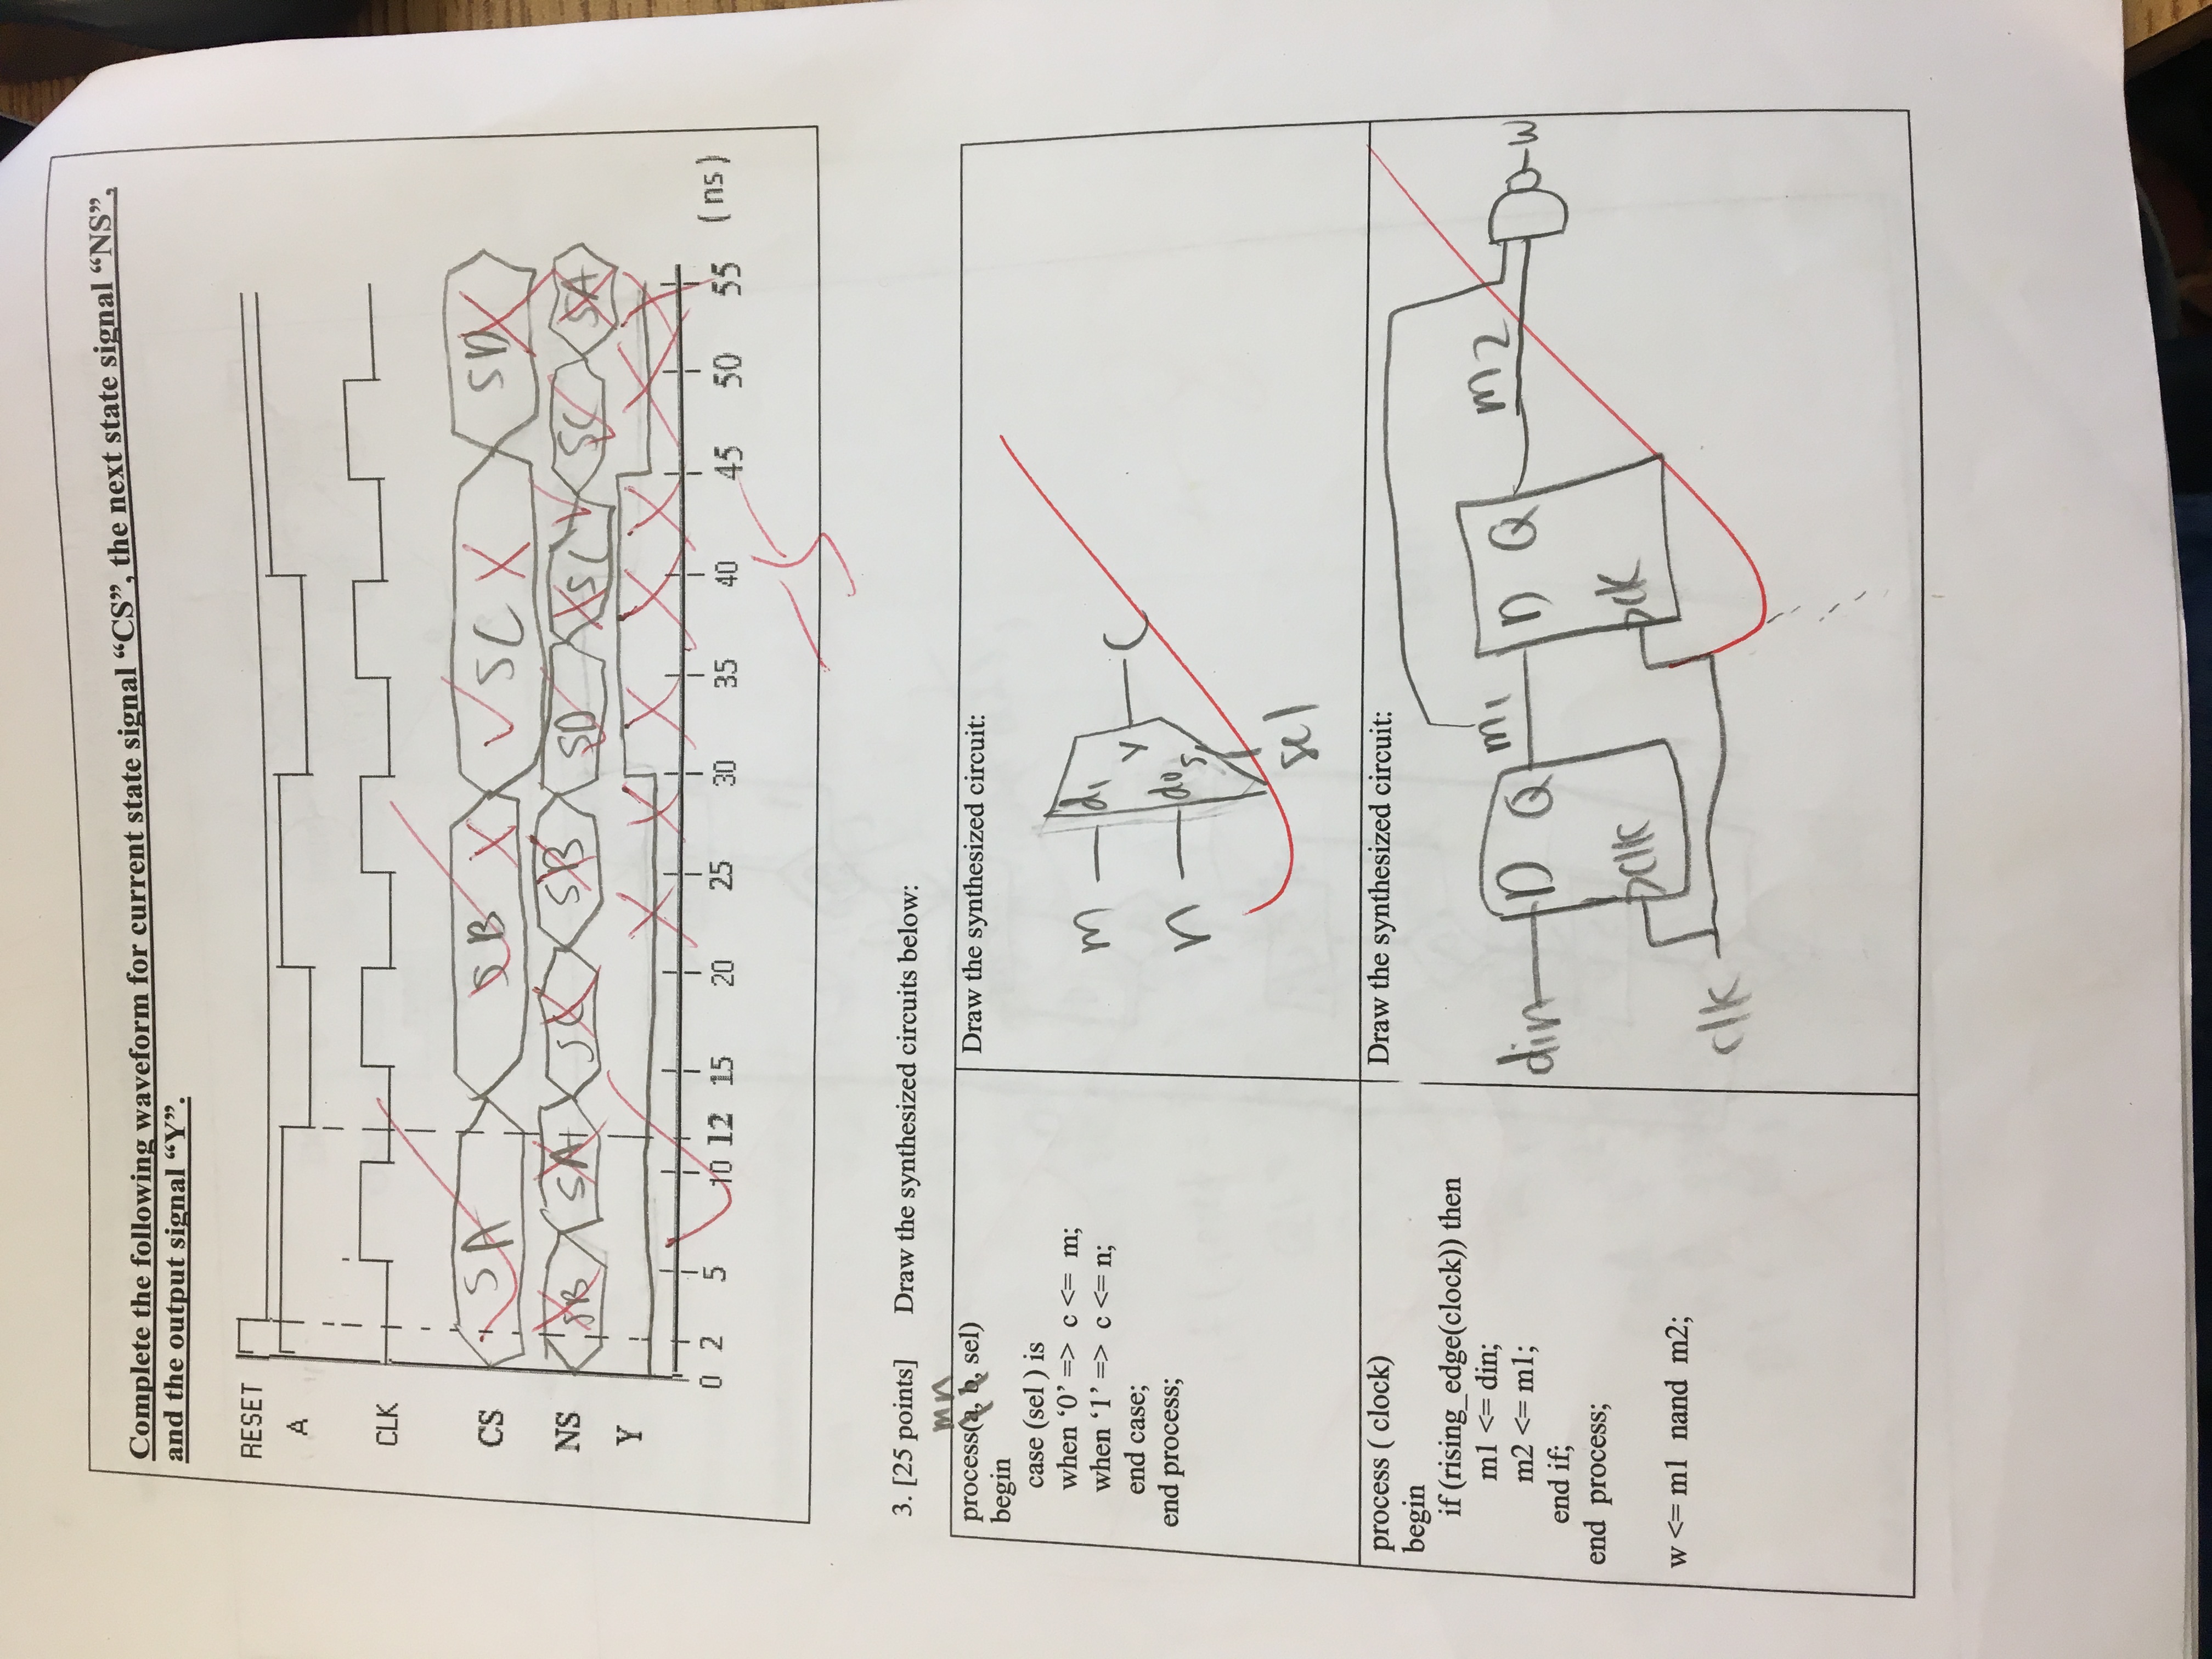 Complete the following waveform for current state signal “CS”, the next state signal “NS”,
and the output signal “Y”.
RESET
A
CLK
CS SA SB SC SD
NS SB SA SC SB SD SC SC SA
Y
0 2 5 10 12 15 20 25 30 35 40 45 50 55 (ns)
-5
3. [25 points] Draw the synthesized circuits below:
m n
process(a, b, sel)
begin
case (sel ) is
when ‘0’ => c <= m;
when ‘1’ => c <= n;
end case;
end process;
Draw the synthesized circuit:
m d1
y C
n d0 s
sel
process ( clock)
begin
if (rising_edge(clock)) then
m1 <= din;
m2 <= m1;
end if;
end process;
w <= m1 nand m2;
Draw the synthesized circuit:
din D Q m1 D Q m2 w
clk clk
clk